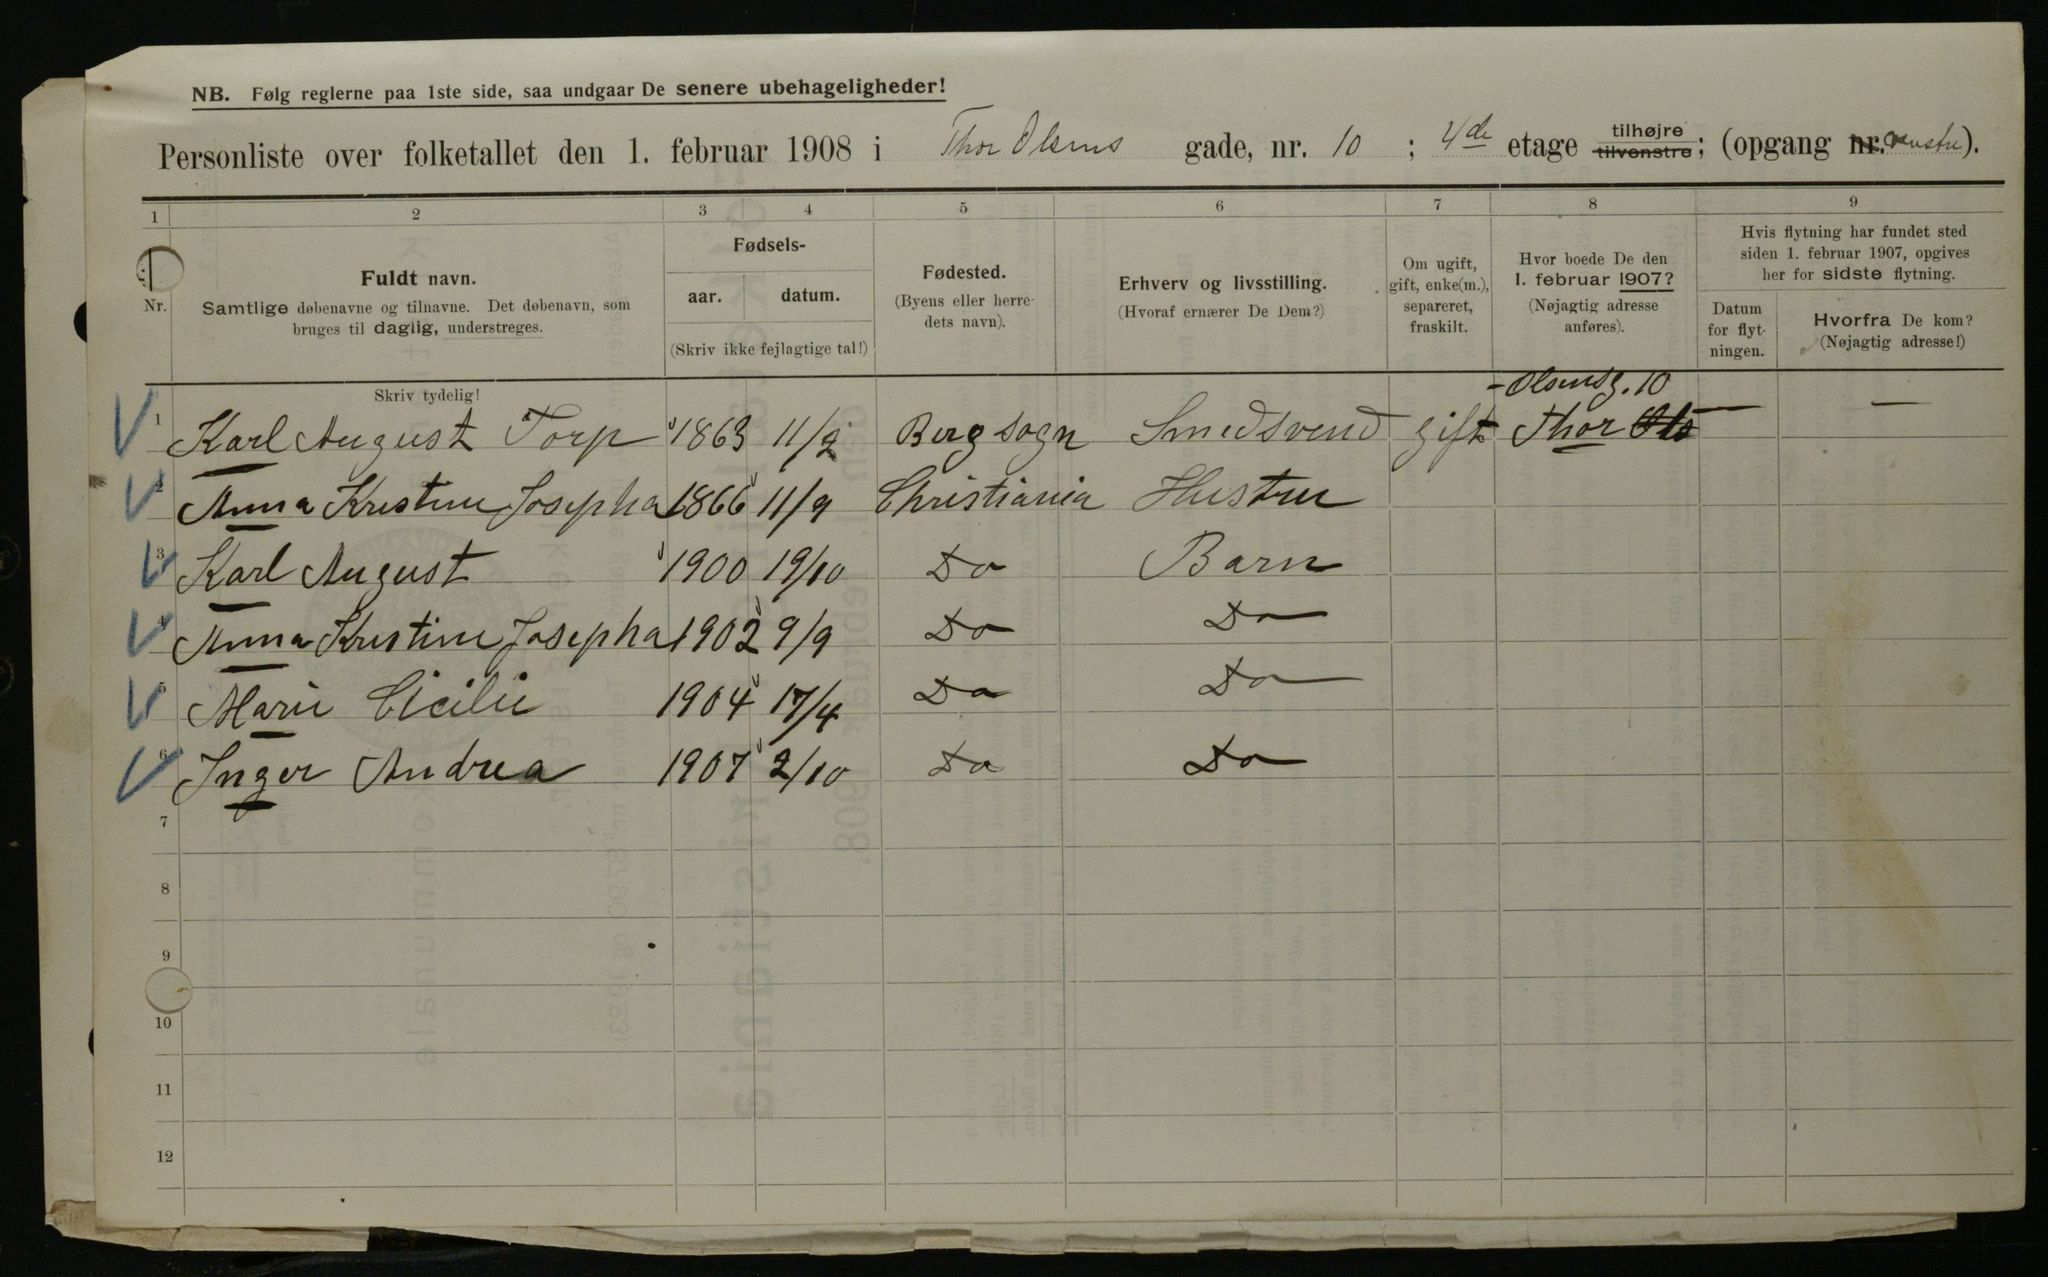 NB. Følg reglerne paa 1ste side, saa undgaar De senere ubehageligheder!
Personliste over folketallet den 1. februar 1908 i Thor Olsens gade, nr. 10 ; 4de etage tilhøjre tilvenstre; (opgang nr. venstre).
1 2 3 4 5 6 7 8 9
Nr.
Fuldt navn.
Samtlige døbenavne og tilnavne. Det døbenavn, som
bruges til daglig, understreges.
Skriv tydelig!
Fødsels-
aar. datum.
(Skriv ikke fejlagtige tal!)
Fødested.
(Byens eller herre-
dets navn).
Erhverv og livsstilling.
(Hvoraf ernærer De Dem?)
Om ugift,
gift, enke(m.),
separeret,
fraskilt.
Hvor boede De den
1. februar 1907?
(Nøjagtig adresse
anføres).
Hvis flytning har fundet sted
siden 1. februar 1907, opgives
her for sidste flytning.
Datum
for flyt-
ningen.
Hvorfra De kom?
(Nøjagtig adresse!)
- Olsensg. 10
1 Karl August Torp 1863 11/2 Berg sogn Smedsvend gift Thor Ols — —
2 Anna Kristine Josepha 1866 11/9 Christiania Hustru
3 Karl August 1900 19/10 Do Barn
4 Anna Kristine Josepha 1902 9/9 Do Do
5 Marie Cicilie 1904 17/4 Do Do
6 Inger Andrea 1907 2/10 Do Do
7
8
9
10
11
12